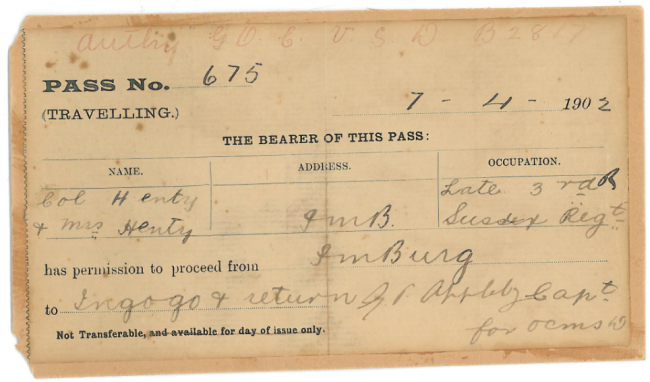 Authy G O. C. V. S. D B2817
PASS No. 675
(TRAVELLING.)
7 - 4 - 1902
THE BEARER OF THIS PASS:
NAME. ADDRESS. OCCUPATION.
Col Henty Late 3rd R
& Mrs Henty JmB. Sussex Regt
has permission to proceed from JmBurg
to Ingogo & return Appleby Capt
Not Transferable, and available for day of issue only.
for